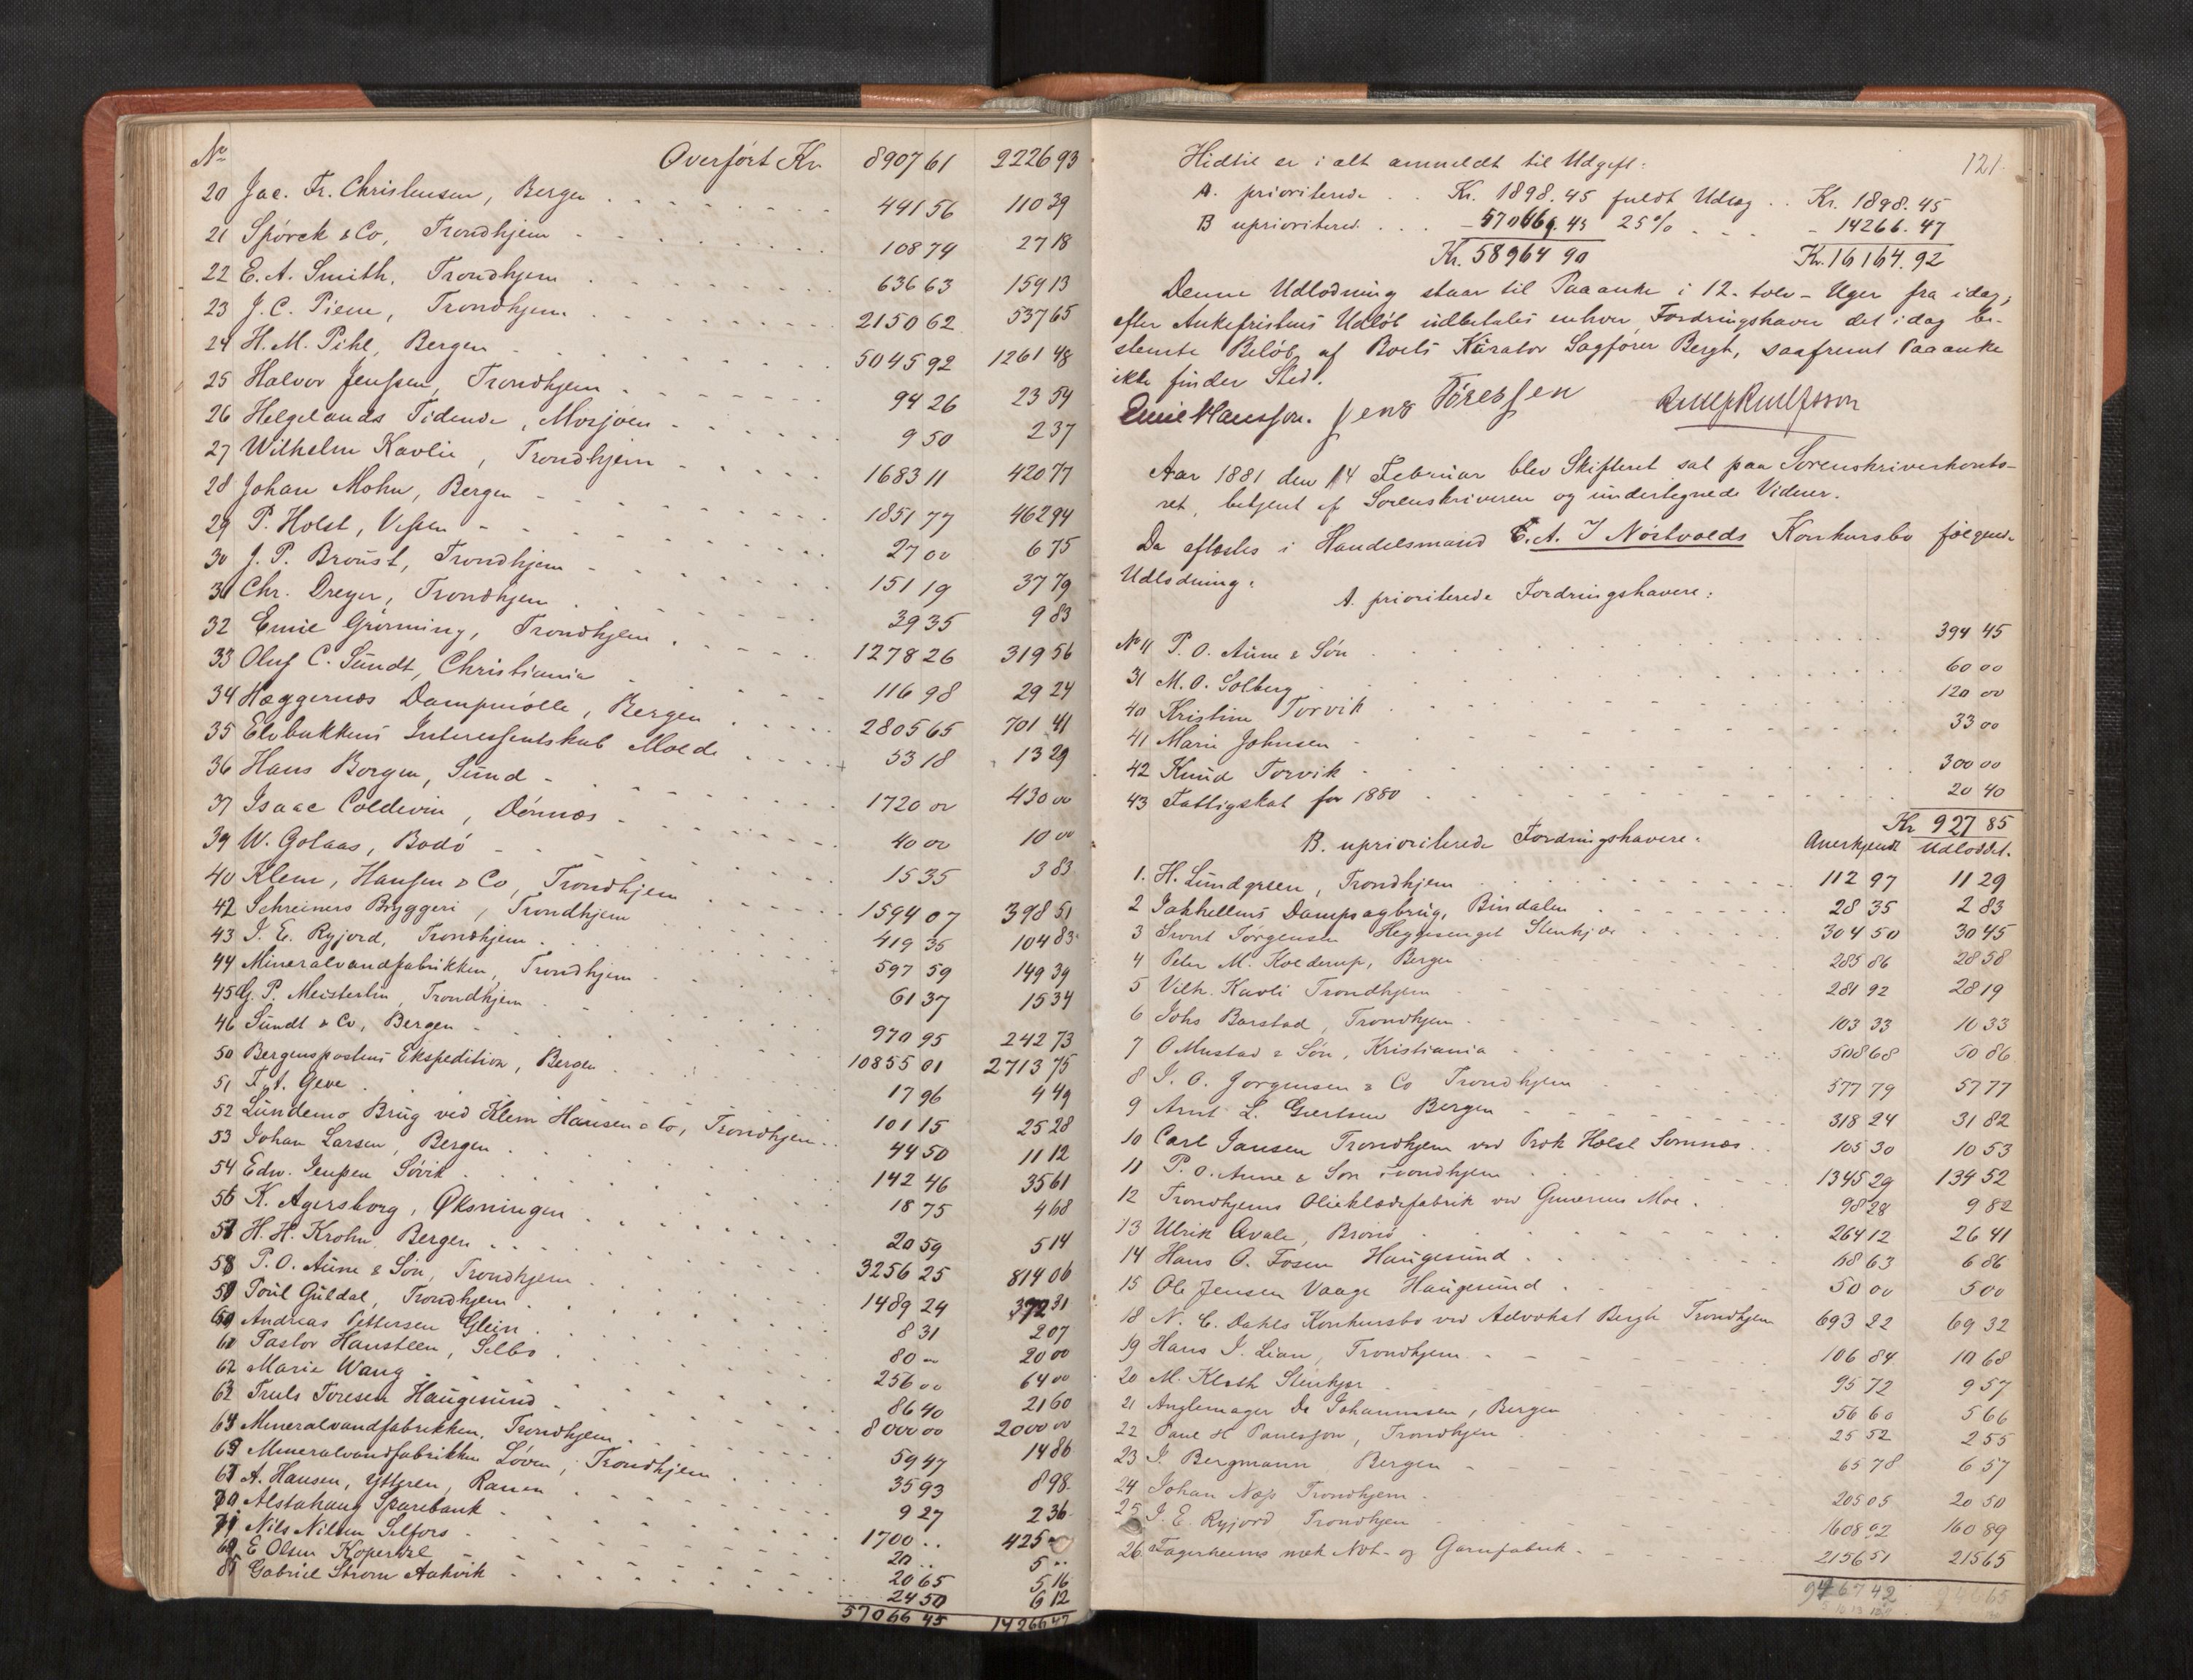 No Overført Kr. 8907 61 2226 93
20 Jac. Fr. Christensen, Bergen 441 56 110 39
21 Spørck & Co, Trondhjem 108 74 27 18
22 E. A. Smith, Trondhjem 636 63 159 13
23 J. C. Piene, Trondhjem 2150 62 537 65
24 H. M. Pihl, Bergen 5045 92 1261 48
25 Halvor Jenssen, Trondhjem 94 26 23 54
26 Helgelands Tidende, Mosjøen 9 50 2 37
27 Wilhelm Kavlie, Trondhjem 1683 11 420 77
28 Johan Mohn, Bergen 1851 77 462 94
29 P. Holst, Vefsen 27 00 6 75
30 J. P. Broust, Trondhjem 151 19 37 79
31 Chr. Dreyer, Trondhjem 39 35 9 83
32 Emil Grønning, Trondhjem 1278 26 319 56
33 Oluf C. Sundt, Christiania 116 98 29 24
34 Hæggernæs Dampmølle, Bergen 2805 65 701 41
35 Elvbakkens Interessentskab Molde 53 18 13 29
36 Hans Borgen, Sund 1720 00 430 00
37 Isaac Coldevin, Dønnæs 40 00 10 00
39 W. Golaas, Bodø 15 35 3 83
40 Klem, Hansen & Co, Trondhjem 1594 07 398 51
42 Schreiners Bryggeri, Trondhjem 419 35 104 83
43 I. E. Ryjord, Trondhjem 597 59 149 39
44 Mineralvandfabrikken, Trondhjem 61 37 15 34
45 G. P. Meisterlin, Trondhjem 970 95 242 73
46 Sundt & Co, Bergen 10855 01 2713 75
50 Bergenspostens Ekspedition, Bergen 17 96 4 49
51 F. A. Geve 101 15 25 28
52 Lundemo Brug ved Klem Hansen & Co, Trondhjem 44 50 11 12
53 Johan Larsen, Bergen 142 46 35 61
54 Edv. Jenssen Søvik 18 75 4 68
56 K. Agersborg, Øksningen 20 59 5 14
57 H. H. Krohn Bergen 3256 25 814 06
58 P. O. Aune & Søn, Trondhjem 1489 24 372 31
59 Poul Guldal, Trondhjem 8 31 2 07
60 Andreas Pettersen Glein 80 20 00
61 Pastor Hansteen, Selbo 256 00 64 00
62 Marie Wang 86 40 21 60
63 Truls Toresen Haugesund 8000 00 2000 00
64 Mineralvandfabrikken, Trondhjem 59 47 14 86
65 Mineralvandfabrikken Løven, Trondhjem 35 93 8 98
67 A. Hansen, Ytteren, Ranen 9 27 2 36
70 Alstahaug Sparebank 1700 .. 425
71 Nils Nilsen Selfors 20 .. 5 ..
69 E Olsen Kopervik 20 65 5 16
Gabriel Strøm Aakvik 24 50 6 12
57066 45 14266 47
121.
Hidtil er i alt anmeldt til Udgift:
A. prioriterede . . Kr. 1898.45 fuldt Udlæg . . Kr. 1898.45
B uprioritered. . . . - 57066.45 25% - - - 14266.47
Kr. 58964 90 Kr. 16164.92
Denne Udlodning staar til Paaanke i 12 - tolv - Uger fra idag,
efter Ankefristens Udløb udbetales enhver Fordringshaver det idag be-
stemte Beløb af Boets Kurator Sagfører Bergh, saafremt Paaanke
ikke finder Sted.
Emil Hansson. Jens Tøressen
Aar 1881 den 14 Februar blev Skifteret sat paa Sorenskriverkonto-
ret, betjent af Sorenskriveren og undertegnede Vidner.
Da aflæstes i Handelsmand E. A. I Nørtvolds Konkursbo følgende
Udlodning:
A. prioriterede Fordringshavere:
No 11 P. O. Aune & Søn 394 45
31 M. O. Solberg 60 00
40 Kristine Torvik 120 00
41 Marie Johnsen 33 00
42 Knud Torvik 300 00
43 Fattigskat for 1880 20 40
Kr 927 85
B. uprioriterede Fordringshavere: Anerkjendt Udloddet.
1. H. Lundgreen, Trondhjem 112 97 11 29
2 Jakhellens Dampsagbrug, Bindalen 28 35 2 83
3 Sivert Jørgensen Heggesenget Stenkjær 304 50 30 45
4 Peter M. Kolderup, Bergen 285 86 28 58
5 Vilh. Kavli Trondhjem 281 92 28 19
6 Johs Barstad, Trondhjem 103 33 10 33
7 O Mustad & Søn, Kristiania 508 68 50 86
8 I. O. Jørgensen & Co Trondhjem 577 79 57 77
9 Arnt L. Giertsen Bergen 318 24 31 82
10 Carl Jansen Trondhjem ved Prok Holst Sømnæs 105 30 10 53
11 P. O. Aune & Søn Trondhjem 1345 29 134 52
12 Trondhjems Olieklædefabrik ved Gunerius Moe 98 28 9 82
13 Ulrik Qvale, Brønø 264 12 26 41
14 Hans O. Fosen Haugesund 68 63 6 86
15 Ole Jensen Vaage Haugesund 50 00 5 00
18 N. C. Dahls Konkursbo ved Advokat Bergh Trondhjem 693 22 69 32
19 Hans I. Lian, Trondhjem 106 84 10 68
20 M. Kloth Stenkjær 95 72 9 57
21 Anglemager D. Johannssen, Bergen 56 60 5 66
22 Paul H Paulsson, Trondhjem 25 52 2 55
23 I. Bergmann Bergen 65 78 6 57
24 Johan Næss Trondhjem 205 05 20 50
25 I. E. Ryjord Trondhjem 1608 92 160 89
26 Fagerheims mek Not- og Garnfabrik 2156 51 215 65
9467 42